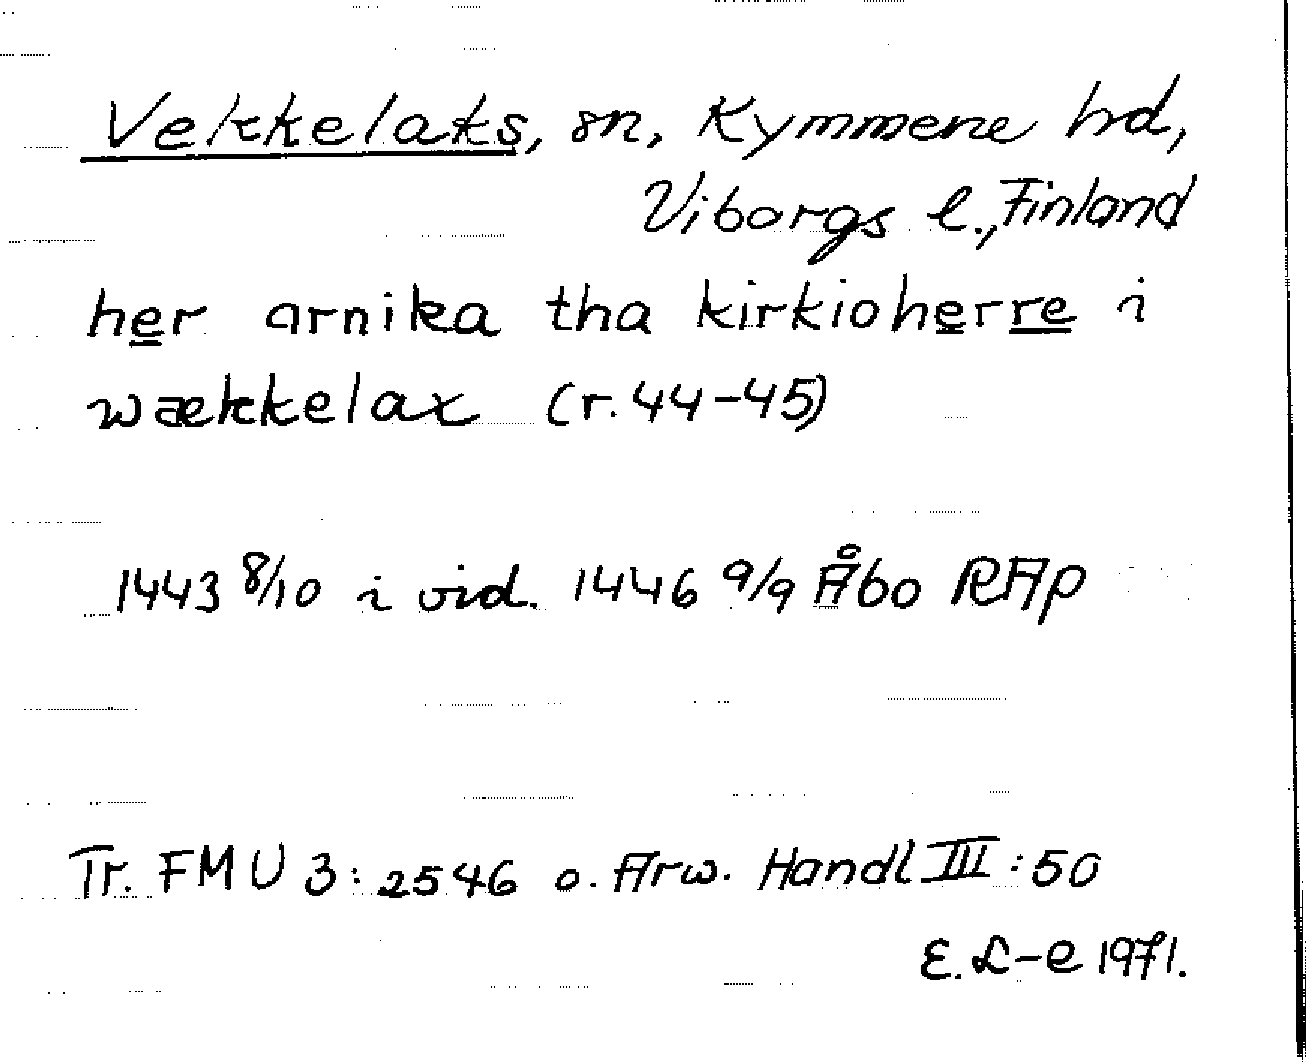 Vekkelaks, sn, Kymmene hd,
Viborgs l., Finland
her arnika tha kirkioherre i
wækkelax (r. 44-45)
1443 8/10 i vid. 1446 9/9 Åbo RAp
Tr. FMU 3:2546 o. Arw. Handl III:50
E. L-e 1971.